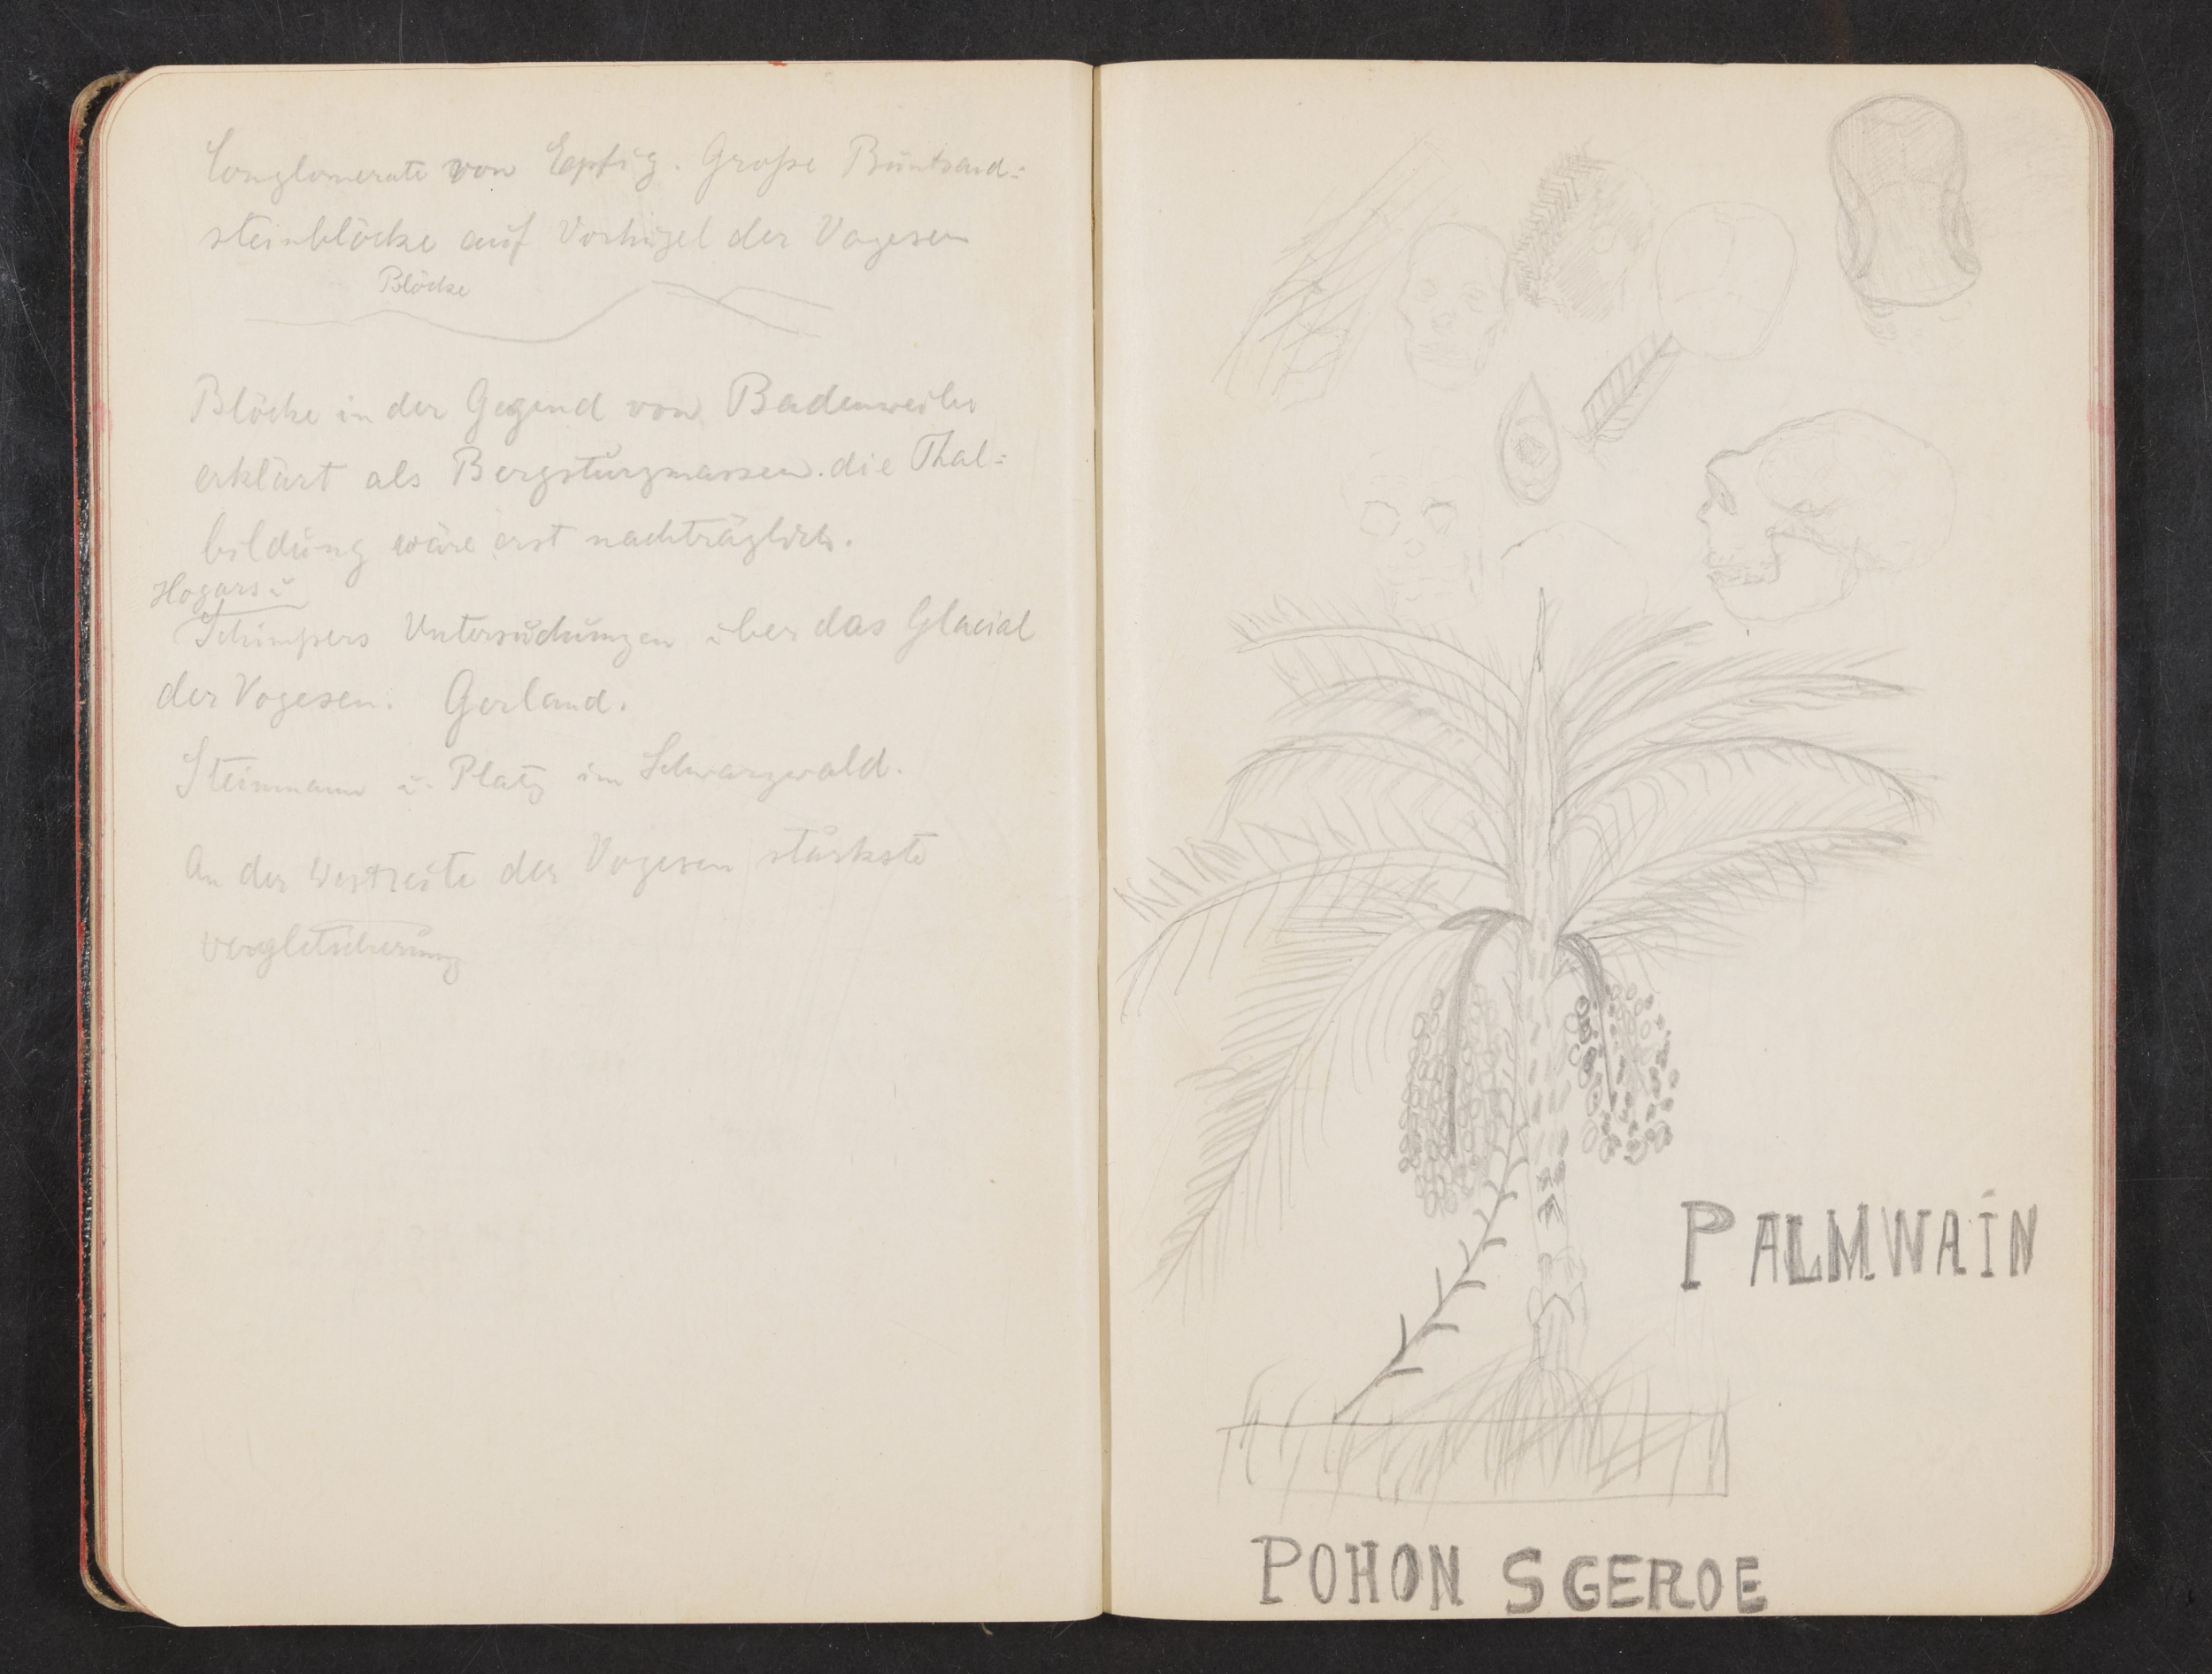 Conglomerate von Epfig. Große Buntsand=
steinblöcke auf Vorhügel der Vogesen
Blöcke
Blöcke in der Gegend von Badenweiler
erklärt als Bergsturzmassen. die Thal=
bildung wäre erst nachträglich.
Hogars u
Schimpers Untersuchungen über das Glacial
der Vogesen. Gerland.
Steinmann u. Platz im Schwarzwald.
An der Westseite der Vogesen stärkste
Vergletscherung
PALMWAIN
POHON SGEROE